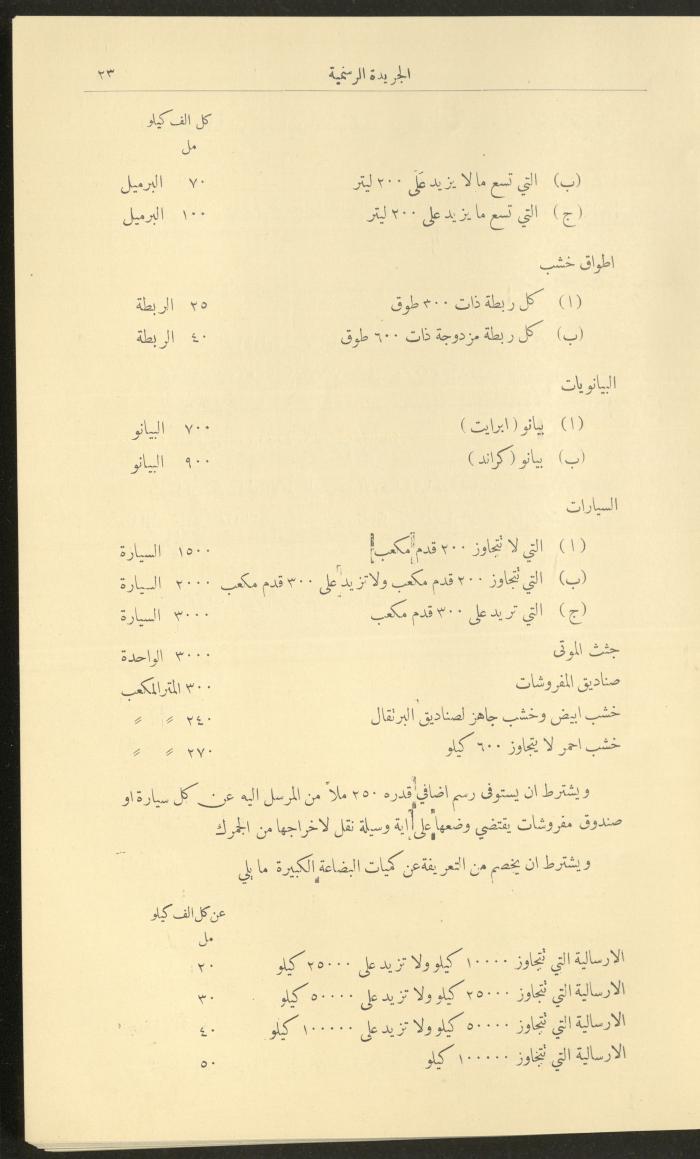 الجريدة الرسمية ٢٣
كل الف كيلو
مل
(ب) التي تسع ما لا يزيد على ٢٠٠ ليتر ٧٠ البرميل
(ج) التي تسع ما يزيد على ٢٠٠ ليتر ١٠٠ البرميل
اطواق خشب
(ا) كل ربطة ذات ٣٠٠ طوق ٢٥ الربطة
(ب) كل ربطة مزدوجة ذات ٦٠٠ طوق ٤٠ الربطة
البيانويات
(ا) بيانو (ابرايت) ٧٠٠ البيانو
(ب) بيانو (كراند) ٩٠٠ البيانو
السيارات
(ا) التي لا تتجاوز ٢٠٠ قدم مكعب ١٥٠٠ السيارة
(ب) التي تتجاوز ٢٠٠ قدم مكعب ولا تزيد على ٣٠٠ قدم مكعب ٢٠٠٠ السيارة
(ج) التي تريد على ٣٠٠ قدم مكعب ٣٠٠٠ السيارة
جثث الموتى ٣٠٠٠ الواحدة
صناديق المفروشات ٣٠٠ المتر المكعب
خشب ابيض وخشب جاهز لصناديق البرتقال ٢٤٠ ″ ″
خشب احمر لا يتجاوز ٦٠٠ كيلو ٢٧٠ ″ ″
ويشترط ان يستوفى رسم اضافي قدره ٢٥٠ ملاً من المرسل اليه عن كل سيارة او
صندوق مفروشات يقتضي وضعها على اية وسيلة نقل لاخراجها من الجمرك
ويشترط ان يخصم من التعريفة عن كميات البضاعة الكبيرة ما يلي
عن كل الف كيلو
مل
الارسالية التي تتجاوز ١٠٠٠٠ كيلو ولا تزيد على ٢٥٠٠٠ كيلو ٢٠
الارسالية التي تتجاوز ٢٥٠٠٠ كيلو ولا تزيد على ٥٠٠٠٠ كيلو ٣٠
الارسالية التي تتجاوز ٥٠٠٠٠ كيلو ولا تزيد على ١٠٠٠٠٠ كيلو ٤٠
الارسالية التي تتجاوز ١٠٠٠٠٠ كيلو ٥٠